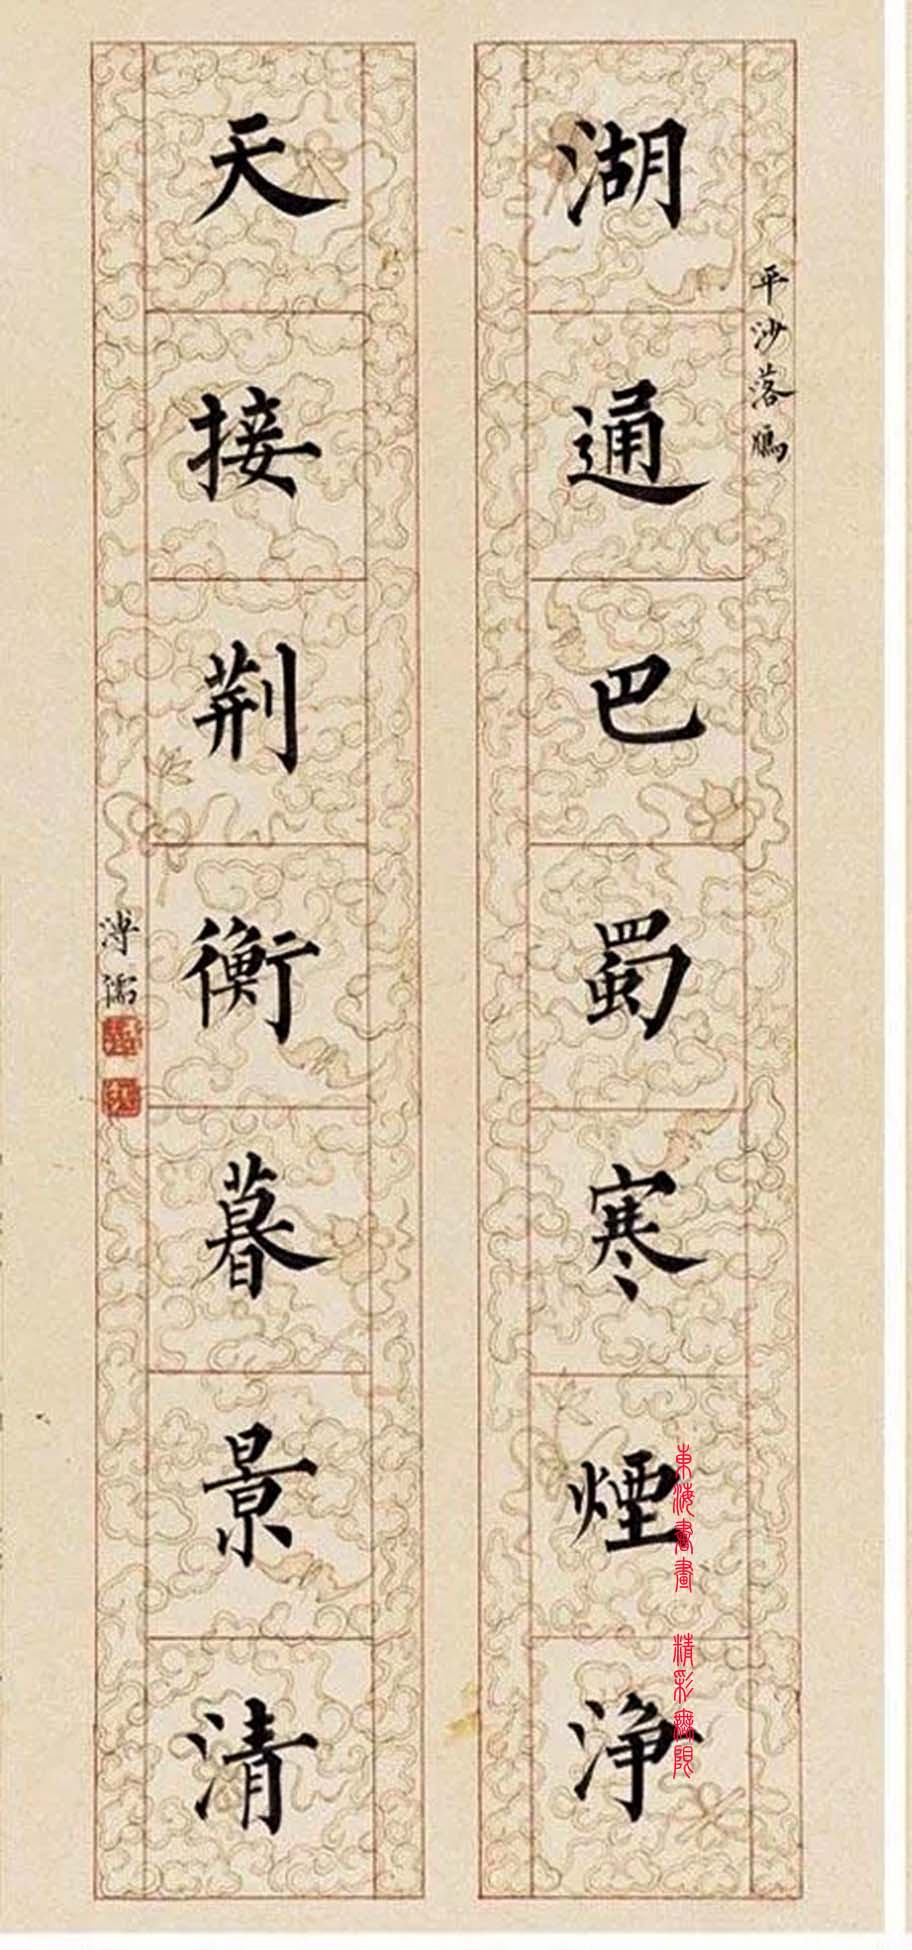 平沙落鴈
湖通巴蜀寒煙淨
天接荆衡暮景清
溥儒
東海書畫 精彩無限